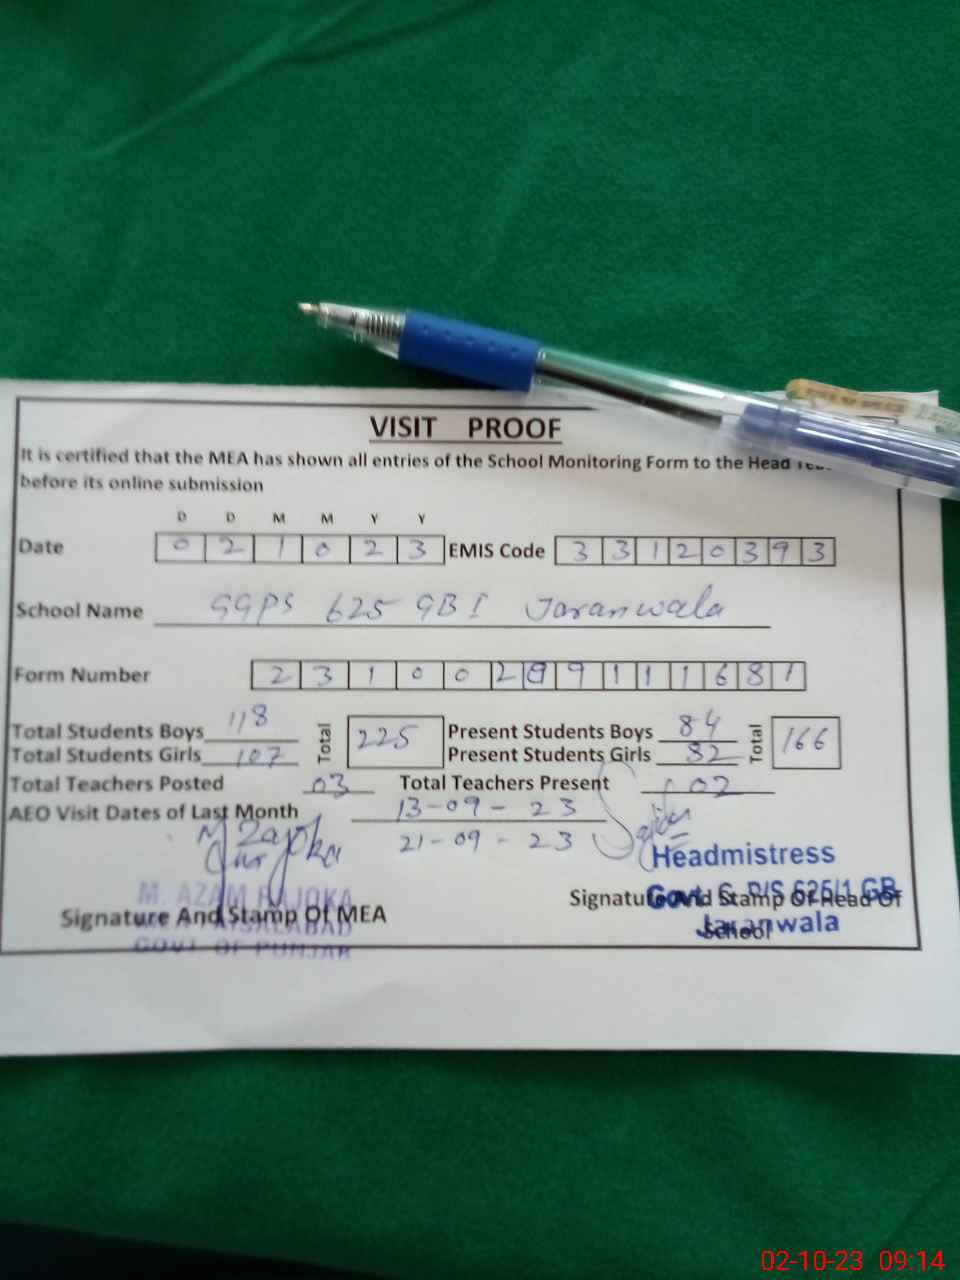 VISIT PROOF
It is certified that the MEA has shown all entries of the School Monitoring Form to the Head
before its online submission
D D M M Y Y
Date 0 2 1 0 2 3 EMIS Code 3 3 1 2 0 3 9 3
School Name GGPS 625 GB I Jaranwala
Form Number 2 3 1 0 0 2 9 1 1 1 6 8 1
Total Students Boys 118 Total 225 Present Students Boys 84 Total 166
Total Students Girls 107 Present Students Girls 82
Total Teachers Posted 03 Total Teachers Present 02
AEO Visit Dates of Last Month 13-09-23
21-09-23
Headmistress
Govt. G. P/S 625/1 GB
Jaranwala
M. AZAM RAJOKA
FAISALABAD
GOVT. OF PUNJAB
Signature And Stamp Of MEA
Signature And Stamp Of Head Of
School
02-10-23 09:14